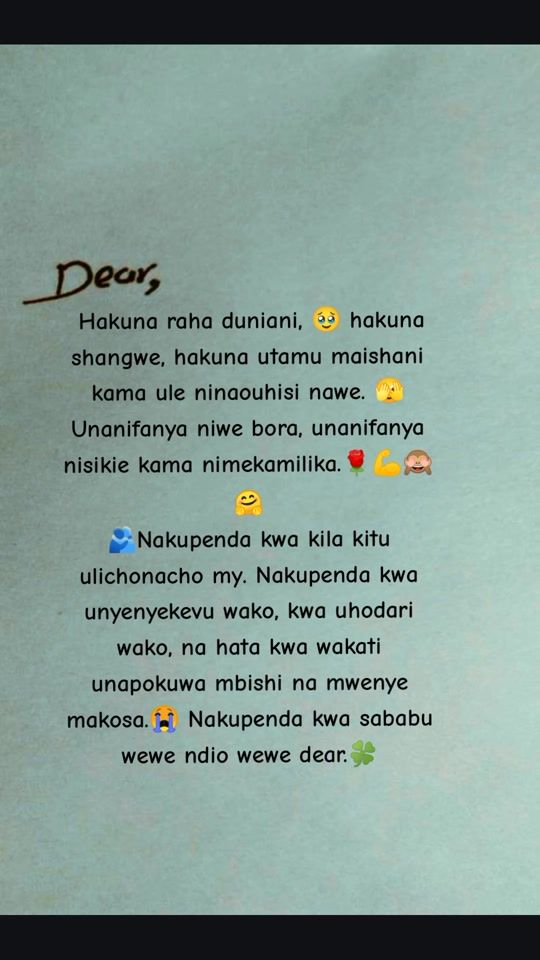 Dear,
Hakuna raha duniani, 🥹 hakuna
shangwe, hakuna utamu maishani
kama ule ninaouhisi nawe. 🫣
Unanifanya niwe bora, unanifanya
nisikie kama nimekamilika.🌹💪🙈
🤗
🫂Nakupenda kwa kila kitu
ulichonacho my. Nakupenda kwa
unyenyekevu wako, kwa uhodari
wako, na hata kwa wakati
unapokuwa mbishi na mwenye
makosa.😭 Nakupenda kwa sababu
wewe ndio wewe dear.🍀